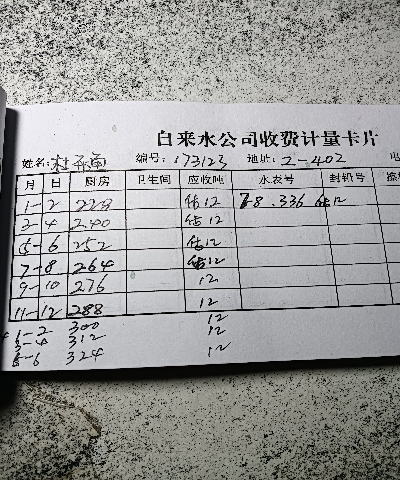 自来水公司收费计量卡片
姓名: 编号: 173123 地址: 2-402 电
月 日 厨房 卫生间 应收吨 水表号 封铅号
1-2 228 估12 78.336 估12
3-4 240 估12
5-6 252 估12
7-8 264 估12
9-10 276 12
11-12 288 12
1-2 300 12
3-4 312 12
5-6 324 12